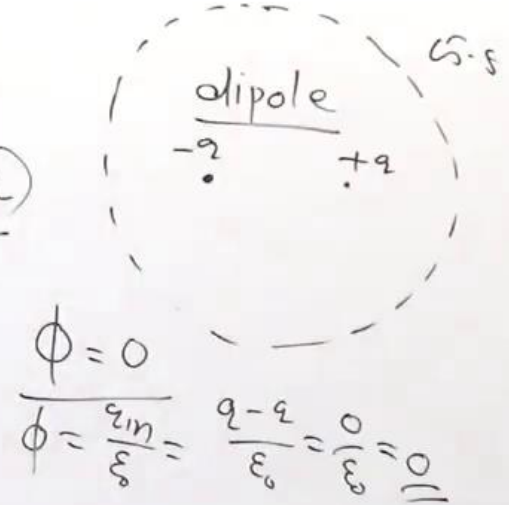 G.S
dipole
-q +q
ϕ = 0
ϕ = qin/ε₀ = q-q/ε₀ = 0/ε₀ = 0